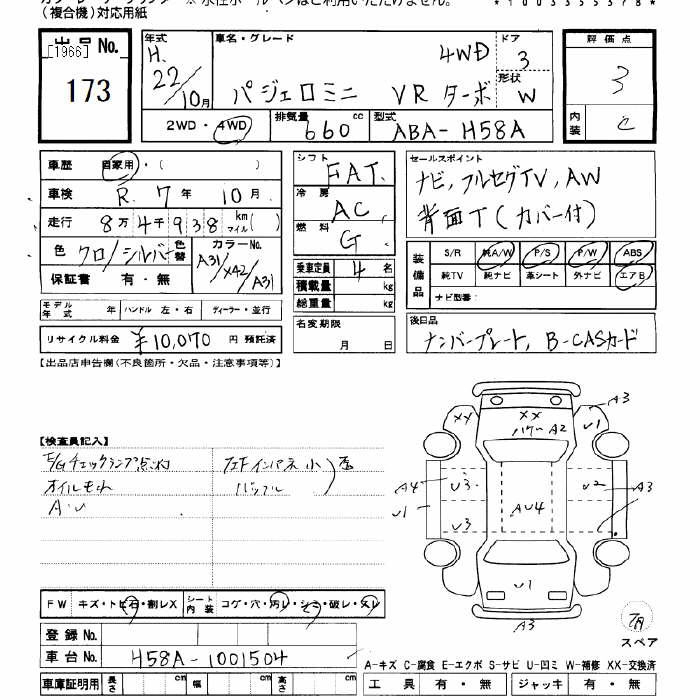 (複合機)対応用紙
*1003355378*
出品No.
[1966]
173
年式 車名・グレード ドア
H. 4WD 3
22/10月 パジェロミニ VR ターボ 形状 W
2WD・4WD 排気量 660 cc 型式 ABA-H58A
評価点
3
内装 C
車歴 自家用・( )
車検 R. 7年 10月
走行 8万4千938 km マイル( )
色 クロ/シルバー 色替 カラーNo. A31/X42/A31
保証書 有・無
モデル年式 年 ハンドル 左・右 ディーラー・並行
リサイクル料金 ¥10,070 円 預託済
シフト FAT
冷房 AC
燃料 G
乗車定員 4 名
積載量 kg
総重量 kg
名変期限
月 日
セールスポイント
ナビ, フルセグTV, AW
背面T(カバー付)
装備品 S/R 純A/W P/S P/W ABS
純TV 純ナビ 革シート 外ナビ エアB
ナビ型番:
後日品
ナンバープレート, B-CASカード
【出品店申告欄(不良箇所・欠品・注意事項等)】
【検査員記入】
E/Gチェックランプ点灯
オイルもれ
A・U
XX XX U1 A3
A2
A4 U3 U2 A3
U1 AU4
U3
U1
A3
スペア
FW キズ・トビ石・割レX シート内装 コゲ・穴・汚レ・シミ・破レ・スレ
登録No.
車台No. H58A-1001504
車庫証明用 長さ cm 幅 cm 高さ cm
A-キズ C-腐食 E-エクボ S-サビ U-凹ミ W-補修 XX-交換済
工具 有・無 ジャッキ 有・無